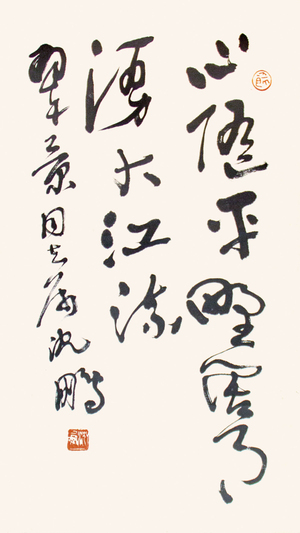 心随平野阔月
湧大江流
景同志属沈鹏